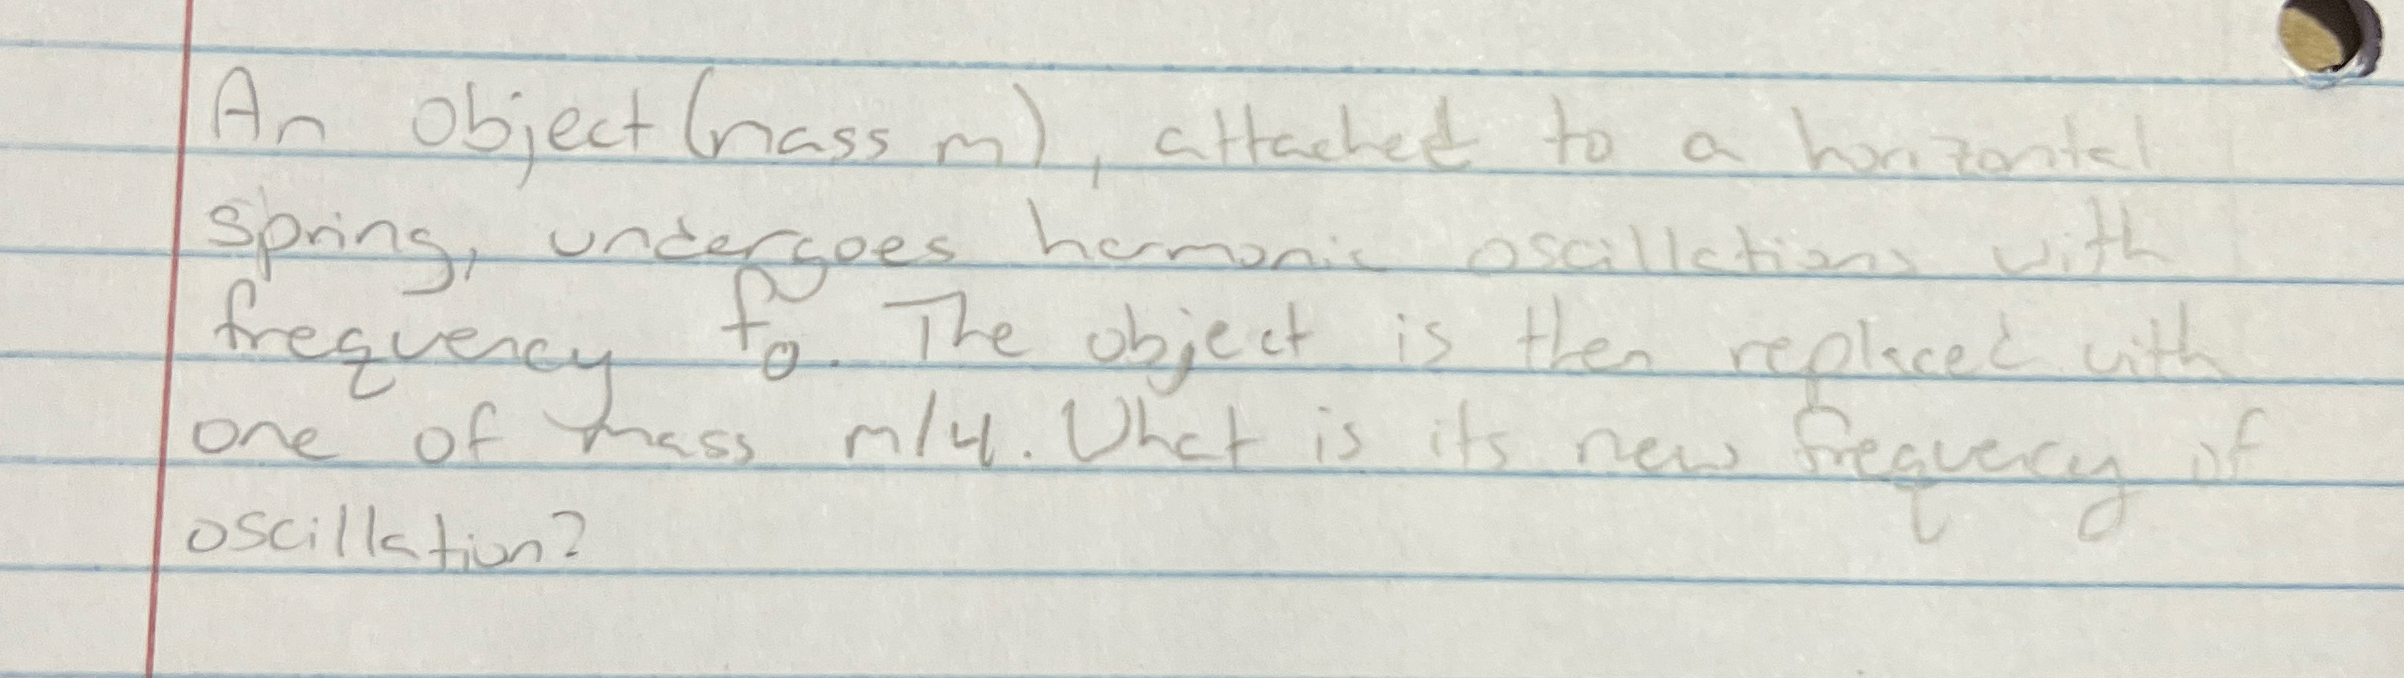 An object (mass m), attached to a horizontal
spring, undergoes harmonic oscillations with
frequency f₀. The object is then replaced with
one of mass m/4. What is its new frequency of
oscillation?